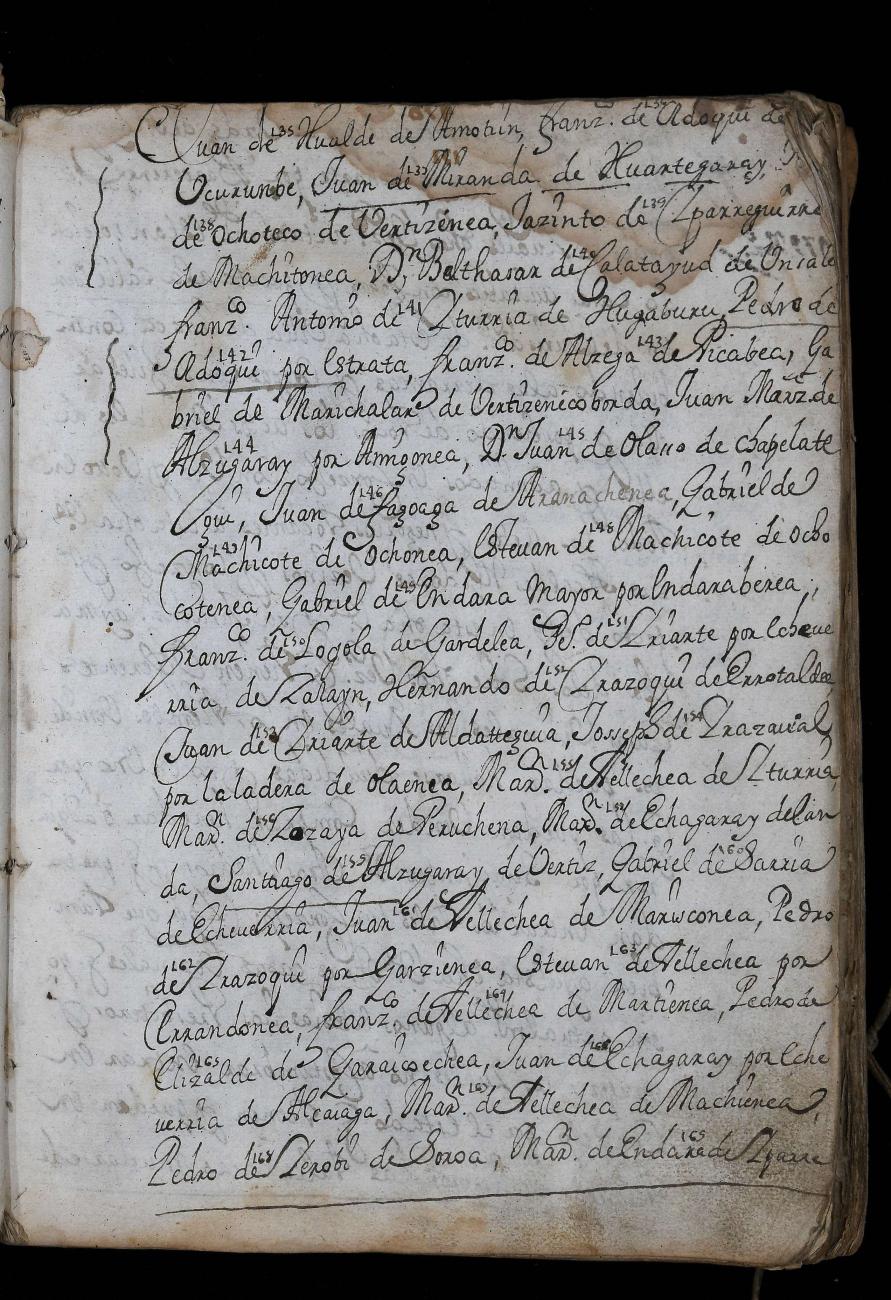 Juan de 135 Hualde de Amotun, franz.co de 136 Adoqui de
Ucurunbe, Juan de 137 Miranda de Huartegaray,
de 138 Ochoteco de Vertizenea, Jazinto de 139 Yparreguirre
de Machitonea, D.n Balthasar de 140 Calatayud de
franz.co Antonio de 141 Yturria de Hugaburu, Pedro de
Adoqui 142 por Estrata, franz.co de Alzega 143 de Picabea, Ga
briel de Marichalar de Vertizenicoborda, Juan Marz. de
Alzugaray 144 por Amigonea, D.n Juan 145 de Olaso de chapelate
gui, Juan de 146 fagoaga de Aranachenea, Gabriel de
Machicote 147 de Ochonea, Estevan de 148 Machicote de Ocho
cotenea, Gabriel de 149 Endara Mayor por Endaraberea,
franz.co de 150 Logola de Gardelea, de 151 Yriarte por Echeve
rria de Zahayn, Hernando de 152 Yrazoqui de Errotaldea,
Juan de 153 Yriarte de Aldatteguia, Josseph de 154 Yrazaval
por la ladera de Olaenea, Mar.n 155 de Tellechea de Yturria,
Mar.n de 156 Zozaya de Peruchena, Mar.n de 157 Echagaray de Lan
da, Santiago de 159 Alzugaray de Vertiz, Gabriel de 160 Sarria
de Echeverria, Juan 161 de Tellechea de Maruxonea, Pedro
de 162 Yrazoqui por Garzienea, Estevan 163 de Tellechea por
Errandonea, franz.co de Tellechea 164 de Martienea, Pedro de
Elizalde 165 de Garaicoechea, Juan de 166 Echagaray por Eche
verria de Alcaiaga, Mar.n 167 de Tellechea de Machienea,
Pedro de 168 Yerobi de Soroa, Mar.n de Endara 169 de Yparre